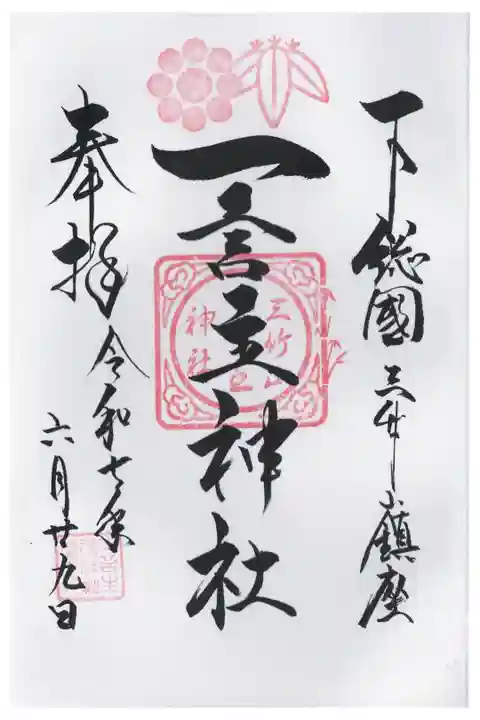 下総國三竹山鎮座
一言主神社
奉拝 令和七年
六月廿九日
三竹山
神社